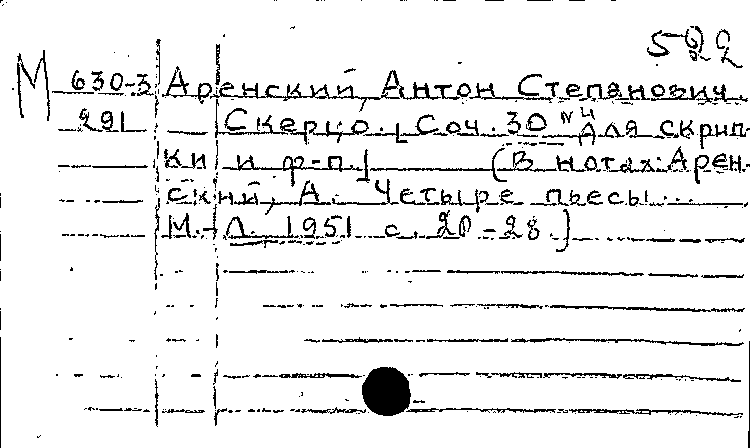 522
М 630-3 Аренский, Антон Степанович.
291 Скерцо. [Соч. 30 № 4 Для скрип-
ки и ф-п.] (В нотах: Арен-
ский, А. Четыре пьесы...
М.-Л. 1951 с. 20-28.)